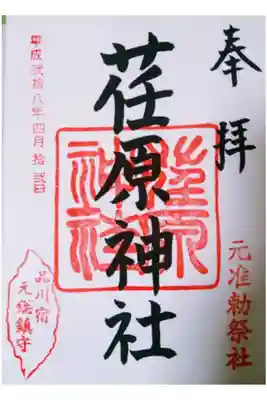 奉拝
元准勅祭社
荏原神社
荏原神社
平成弐拾八年四月拾弐日
品川宿
元総鎮守